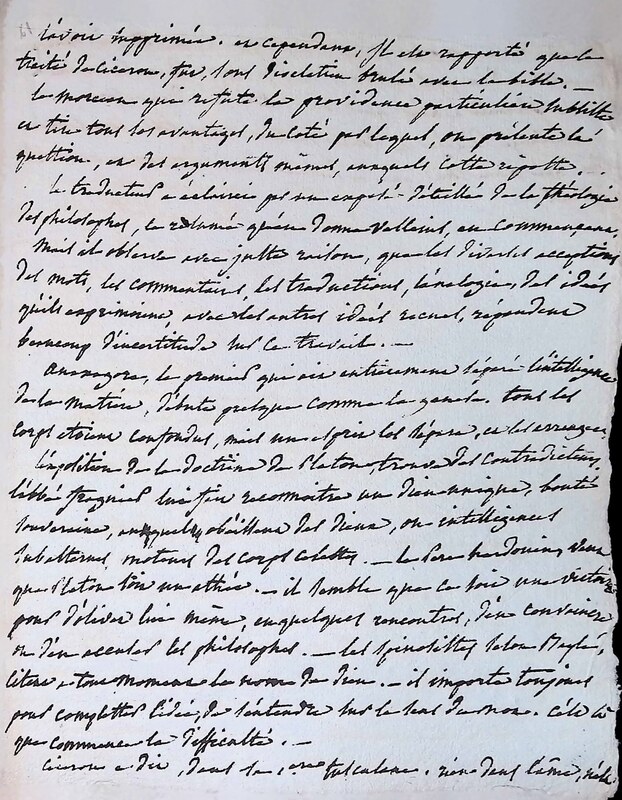 l'avoir supprimée. et cependant, il est rapporté que le
traité de ciceron, fut, sous diocletien brulé avec la bible. —
le morceau qui refute la providence particulière subsiste
et tire tous les avantages, du coté par lequel, on présente la
question, et des arguments mêmes, auxquels cotta riposte.
le traducteur a éclairci par un exposé détaillé de la théologie
des philosophes, le résumé qu'en donne Velleius, en commençant.
Mais il observe avec juste raison, que les diverses acceptions
des mots, les commentaires, les traductions, l'analogie, des idées
qu'ils exprimoient, avec les autres idées recues, répandent
beaucoup d'incertitude sur ce travail. —
Anaxagore, le premier qui ait entièrement séparé l'intelligence
de la matière, débute presque comme la genese. tous les
corps etoient confondus, mais un esprit les sépara, et les arrangea.
l'exposition de la doctrine de Platon trouve des contradicteurs.
l'abbé fraguier lui fait reconnoitre un dieu unique, bonté
souveraine, auquel obéissent des dieux, ou intelligences
subalternes, moteurs des corps celestes. — le Pere hardouin, veut
que Platon soit un athée. — il semble que ce soit une victoire
pour d'olivet lui même, en quelques rencontres, d'en convaincre
ou d'en accuser les philosophes. — les spinosistes selon Bayle,
citent a tous moments le nom de dieu. — il importe toujours
pour completter l'idée, de s'entendre sur le sens du mot. c'est là
que commence la difficulté. —
Ciceron a dit, dans la 1ere tusculane. rien dans l'âme, n'est